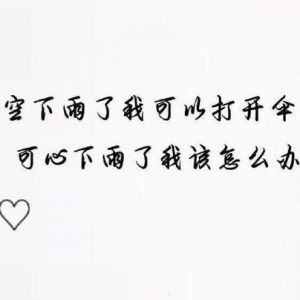 空下雨了我可以打开伞
可心下雨了我该怎么办